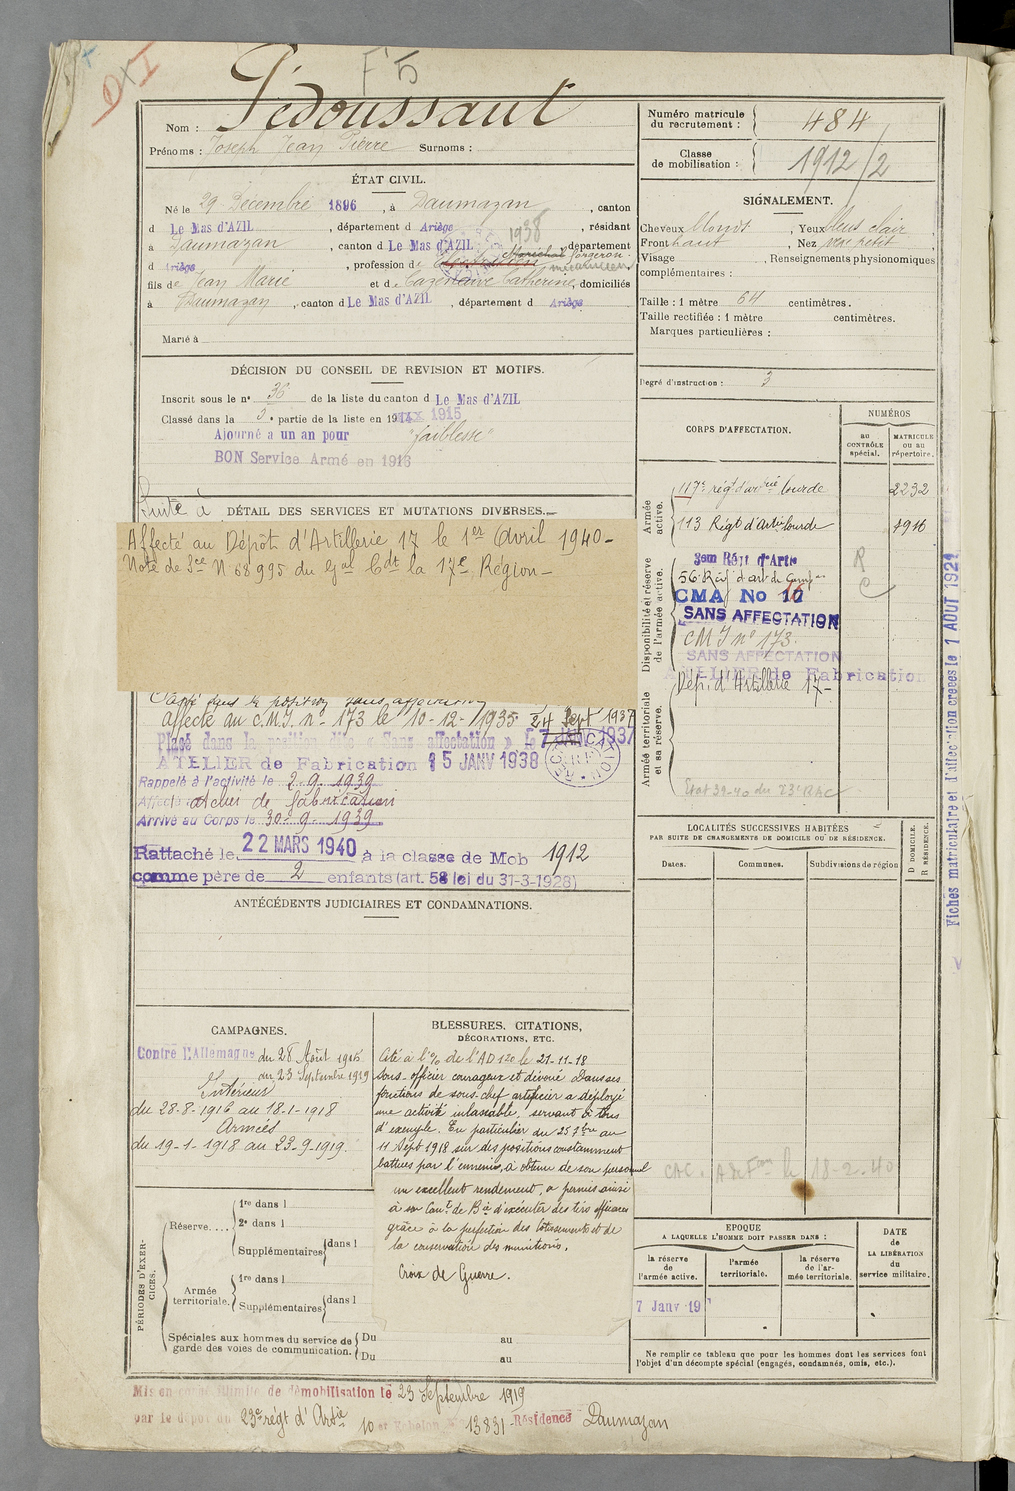 F 5
Nom : Pédoussaut
Prénoms : Joseph Jean Pierre Surnoms :
Numéro matricule du recrutement : 484
Classe de mobilisation : 1912/2
ÉTAT CIVIL.
Né le 29 Décembre 1896, à Daumazan, canton
d Le Mas d'AZIL, département d Ariège, résidant
à Daumazan, canton d Le Mas d'AZIL 1938, département
d Ariège, profession de Maréchal forgeron
mécanicien
fils de Jean Marie et de Cazeneuve Catherine, domiciliés
à Daumazan, canton d Le Mas d'AZIL, département d Ariège
Marié à
SIGNALEMENT.
Cheveux blonds, Yeux bleus clair
Front haut, Nez petit
Visage , Renseignements physionomiques
complémentaires :
Taille : 1 mètre 64 centimètres.
Taille rectifiée : 1 mètre centimètres.
Marques particulières :
Degré d'instruction : 3
DÉCISION DU CONSEIL DE REVISION ET MOTIFS.
Inscrit sous le n° 36 de la liste du canton d Le Mas d'AZIL
Classé dans la 5e partie de la liste en 1915
Ajourné a un an pour "faiblesse"
BON Service Armé en 1916
Suite à
DÉTAIL DES SERVICES ET MUTATIONS DIVERSES.
Affecté au Dépôt d'Artillerie 17 le 1er Avril 1940 -
Note de Sce N 68995 du Gal Cdt la 17e Région -
Passé dans la position sans affectation
affecté au C.M.I. n° 173 le 10-12-1935 24 Sept 1937
Placé dans la position dite « Sans affectation » le 7 JANV 1937
ATELIER de Fabrication 15 JANV 1938
Rappelé à l'activité le 2-9-1939
Affecté atelier de fabrication
Arrivé au Corps le 30-9-1939
Rattaché le 22 MARS 1940 à la classe de Mob 1912
comme père de 2 enfants (art. 58 loi du 31-3-1928)
CORPS D'AFFECTATION.
NUMÉROS
au CONTRÔLE spécial.
MATRICULE ou au répertoire.
Armée active.
117e régt d'artrie lourde 2232
113 Régt d'Artie lourde 1916
Disponibilité et réserve de l'armée active.
56 Rég d'art de Camp
CMA No 16
SANS AFFECTATION
CMI n° 173.
SANS AFFECTATION
ATELIER de Fabrication
R
C
Armée territoriale et sa réserve.
Dép. d'Artillerie 17 -
Fiches matriculaire et d'affectation créées le 1 AOUT 1921
LOCALITÉS SUCCESSIVES HABITÉES
PAR SUITE DE CHANGEMENTS DE DOMICILE OU DE RÉSIDENCE.
Dates. Communes. Subdivisions de région
D DOMICILE.
R RÉSIDENCE.
ANTÉCÉDENTS JUDICIAIRES ET CONDAMNATIONS.
CAMPAGNES.
Contre l'Allemagne du 28 Août 1916
au 23 Septembre 1919
Intérieur
du 28-8-1916 au 18-1-1918
Armées
du 19-1-1918 au 23-9-1919.
BLESSURES, CITATIONS,
DÉCORATIONS, ETC.
Cité à l'O/ de l'AD 120 le 21-11-18
Sous-officier courageux et dévoué Dans ses
fonctions de sous-chef artificier a déployé
une activité inlassable, servant à tous
d'exemple. En particulier du 25 7bre au
11 Sept 1918 sur des positions constamment
battues par l'ennemi, a obtenu de son personnel
un excellent rendement, a permis ainsi
à son Cant de Bie d'exécuter des tirs efficaces
grâce à la perfection des lotissements et de
la conservation des munitions.
Croix de Guerre.
18-2-40
PÉRIODES D'EXERCICES.
Réserve.... 1re dans l
2e dans l
Supplémentaires dans l
Armée territoriale. 1re dans l
Supplémentaires dans l
Spéciales aux hommes du service de garde des voies de communication. Du au
Du au
EPOQUE
A LAQUELLE L'HOMME DOIT PASSER DANS :
la réserve de l'armée active.
l'armée territoriale.
la réserve de l'armée territoriale.
DATE de LA LIBÉRATION du service militaire.
7 Janv 19
Ne remplir ce tableau que pour les hommes dont les services font
l'objet d'un décompte spécial (engagés, condamnés, omis, etc.).
Mis en congé illimité de démobilisation le 23 Septembre 1919
par le dépôt du 23e régt d'Artie 10 eme Echelon No 13831 Résidence Daumazan